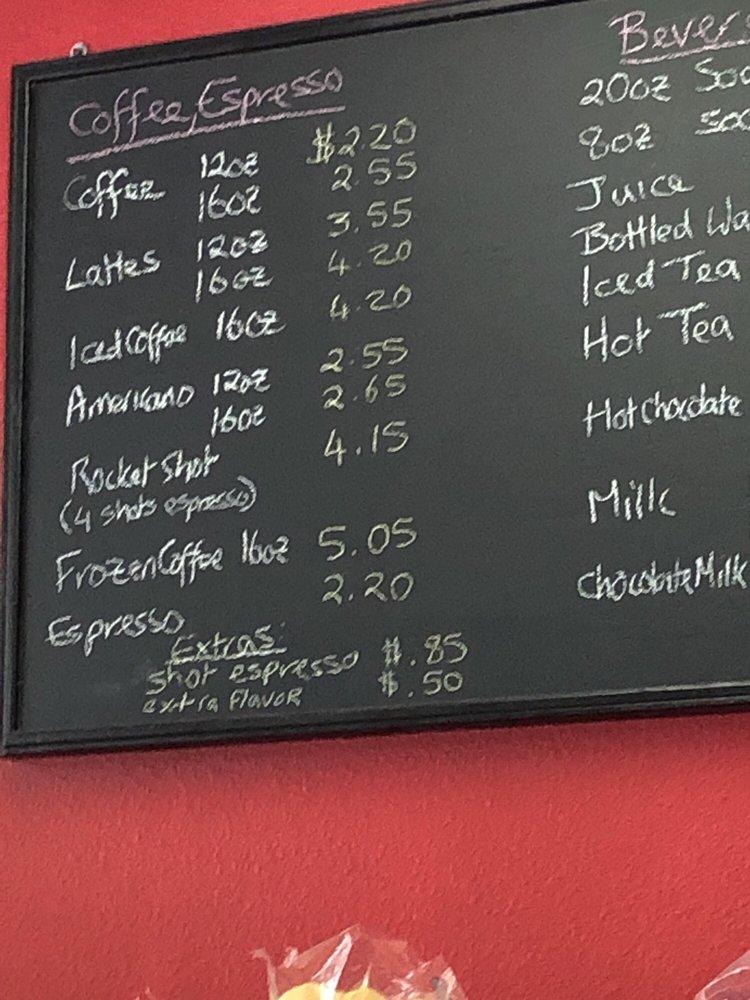 Coffee, Espresso
Coffee 12oz $2.20
16oz 2.55
Lattes 12oz 3.55
16oz 4.20
Iced Coffee 16oz 4.20
Americano 12oz 2.55
16oz 2.65
Rocket Shot 4.15
(4 shots espresso)
Frozen Coffee 16oz 5.05
Espresso 2.20
Extras:
shot espresso $.85
extra flavor $.50
20oz
8oz
Juice
Bottled
Iced Tea
Hot Tea
Hot chocolate
Milk
Chocolate Milk